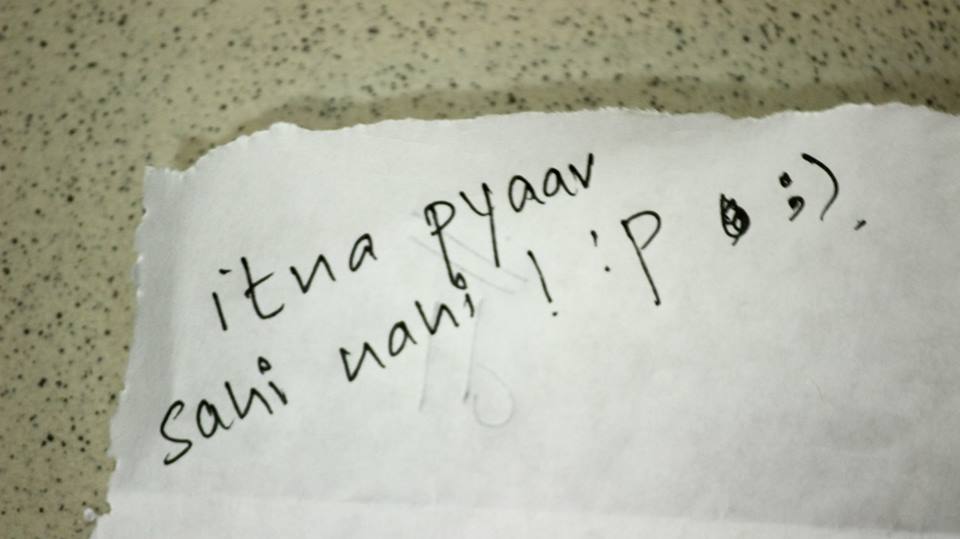 itna pyaar
sahi nahi! :P ;)